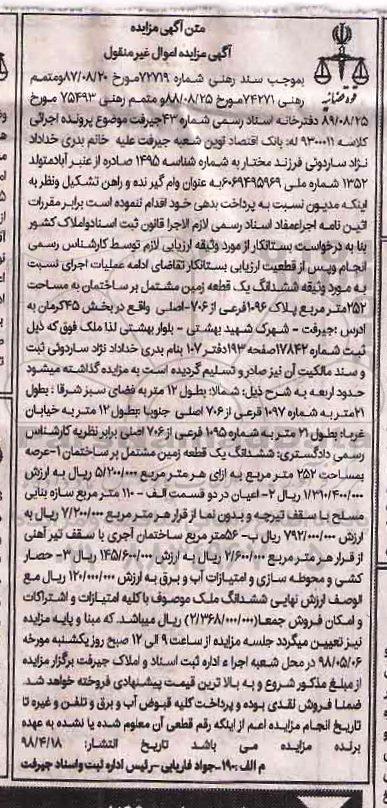 متن آگهی مزایده
آگهی مزایده اموال غیر منقول
قوه قضائیه
بموجب سند رهنی شماره ۷۲۷۱۹مورخ ۸۷/۰۸/۲۰ومتمم
رهنی ۷۴۲۷۱مورخ ۸۸/۰۸/۲۵و متمم رهنی ۷۵۴۹۳ مورخ
۸۹/۰۸/۲۵ دفترخانه اسناد رسمی شماره ۴۳جیرفت موضوع پرونده اجرائی
کلاسه ۹۳۰۰۱۱ له: بانک اقتصاد نوین شعبه جیرفت علیه خانم بدری خداداد
نژاد ساردوئی فرزند مختار به شماره شناسه ۱۴۹۵ صادره از عنبر آبادمتولد
۱۳۵۲ شماره ملی ۶۰۶۹۴۹۵۹۶۹به عنوان وام گیر نده و راهن تشکیل ونظر به
اینکه مدیون نسبت به پرداخت بدهی خود اقدام ننموده است برابر مقررات
آئین نامه اجراءمفاد اسناد رسمی لازم الاجرا قانون ثبت اسنادواملاک کشور
بنا به درخواست بستانکار از مورد وثیقه ارزیابی لازم توسط کارشناس رسمی
انجام وپس از قطعیت ارزیابی بستانکار تقاضای ادامه عملیات اجرای نسبت
به مورد وثیقه ششدانگ یک قطعه زمین مشتمل بر ساختمان به مساحت
۲۵۲متر مربع پلاک ۱۰۹۶فرعی از ۷۰۶-اصلی واقع دربخش ۴۵کرمان به
آدرس :جیرفت - شهرک شهید بهشتی - بلوار بهشتی لذا ملک فوق که ذیل
ثبت شماره ۱۷۸۴۲صفحه ۱۹۳دفتر ۱۰۷ بنام بدری خداداد نژاد ساردوئی ثبت
و سند مالکیت آن نیز صادر و تسلیم گردیده است به مزایده گذاشته میشود
حدود اربعه به شرح ذیل: شمالا: بطول ۱۲ متر به فضای سبز شرقا : بطول
۲۱متر به شماره ۱۰۹۷ فرعی از ۷۰۶ اصلی جنوبا :بطول ۱۲ متر به خیابان
غربا: بطول ۲۱ متر به شماره ۱۰۹۵ فرعی از ۷۰۶ اصلی برابر نظریه کارشناس
رسمی دادگستری: ششدانگ یک قطعه زمین مشتمل بر ساختمان ۱-عرصه
بمساحت ۲۵۲ متر مربع به ازای هر متر مربع ۵/۲۰۰/۰۰۰ ریال به ارزش
۱/۳۱۰/۴۰۰/۰۰۰ ریال ۲- اعیان در دو قسمت الف - ۱۱۰ متر مربع سازه بنایی
مسلح با سقف تیرچه و بدون نما از قرار هر متر مربع ۷/۲۰۰/۰۰۰ ریال به
ارزش ۷۹۲/۰۰۰/۰۰۰ ریال ب- ۵۶متر مربع ساختمان آجری با سقف تیر آهنی
از قرار هر متر مربع ۲/۶۰۰/۰۰۰ ریال به ارزش ۱۴۵/۶۰۰/۰۰۰ ریال ۳- حصار
کشی و محوطه سازی و امتیازات آب و برق به ارزش ۱۲۰/۰۰۰/۰۰۰ ریال مع
الوصف ارزش نهایی ششدانگ ملک موصوف با کلیه امتیازات و اشتراکات
و امکان فروش جمعا(۲/۳۶۸/۰۰۰/۰۰۰) ریال میباشد. که مبنا و پایه مزایده
نیز تعیین میگردد جلسه مزایده از ساعت ۹ الی ۱۲ صبح روز یکشنبه مورخه
۹۸/۰۵/۰۶ در محل شعبه اجرا ء اداره ثبت اسناد و املاک جیرفت برگزار مزایده
از مبلغ مذکور شروع و به بالا ترین قیمت پیشنهادی فروخته خواهد شد.
ضمنا فروش نقدی بوده و پرداخت کلیه قبوض آب و برق و تلفن و غیره تا
تاریخ انجام مزایده اعم از اینکه رقم قطعی آن معلوم شده یا نشده به عهده
برنده مزایده می باشد تاریخ انتشار: ۹۸/۴/۱۸
م الف :۱۹۰-جواد فاریابی -رئیس اداره ثبت واسناد جیرفت